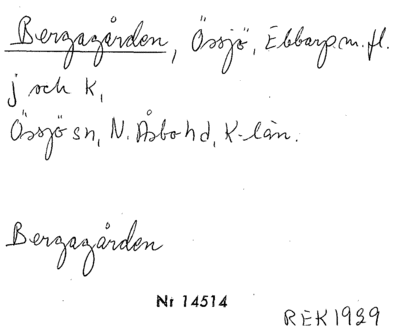 Bergagården, Össjö, Ebbarp m.fl.
j och K,
Össjö sn, N. Åsbo hd, K-län.
Bergagården
Nr 14514
REK 1929